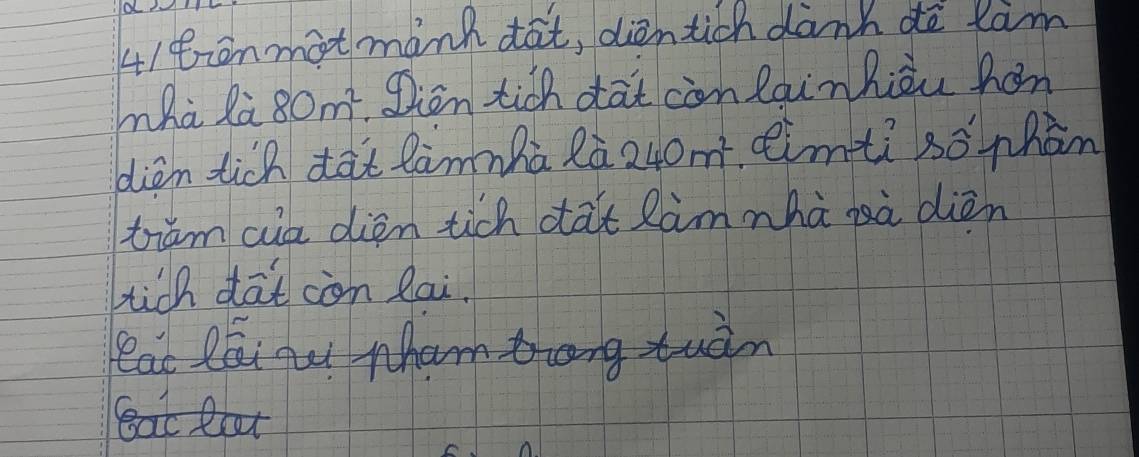 4/ Trên một mảnh đất, diện tích dành để làm
nhà là 80m². Diện tích đất còn lại nhiều hơn
diện tích đất làm nhà là 240m². Tìm tỉ số phần
trăm của diện tích đất làm nhà và diện
tích đất còn lại.
Các lỗi vi phạm trong tuần
Các